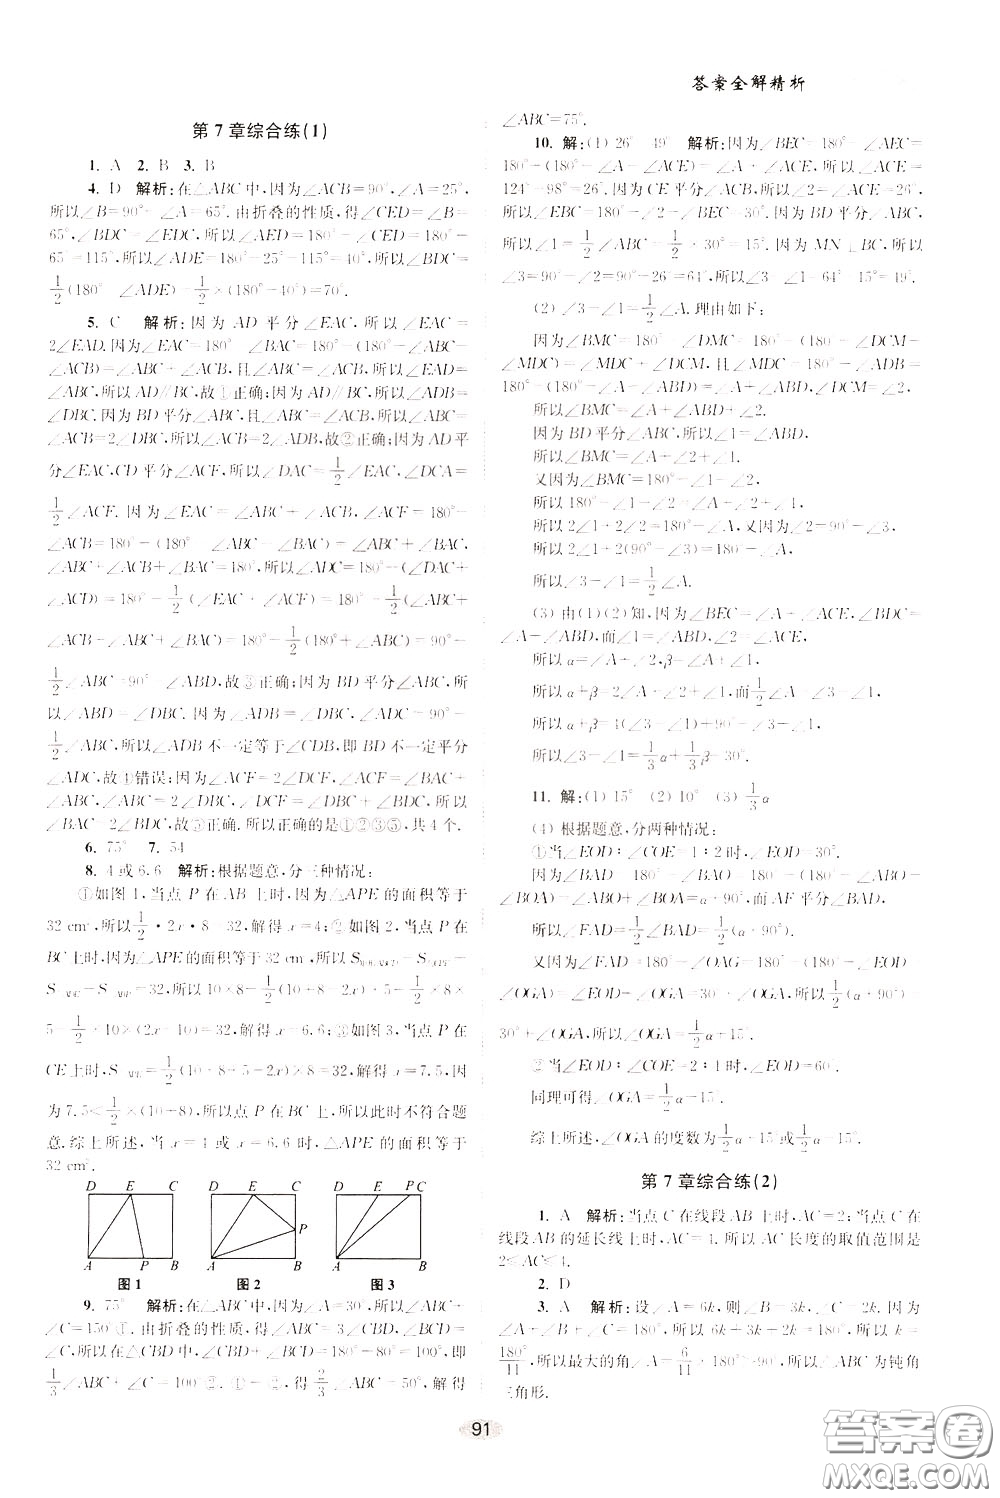 答案全解精析
第7章综合练(1)
1. A 2. B 3. B
4. D 解析:在△ABC中,因为∠ACB=90°,∠A=25°,
所以∠B=90°-∠A=65°. 由折叠的性质,得∠CED=∠B=
65°,∠BDC=∠EDC,所以∠AED=180°-∠CED=180°-
65°=115°,所以∠ADE=180°-25°-115°=40°,所以∠BDC=
1/2(180°-∠ADE)=1/2×(180°-40°)=70°.
5. C 解析:因为AD平分∠EAC,所以∠EAC=
2∠EAD. 因为∠EAC=180°-∠BAC=180°-(180°-∠ABC-
∠ACB)=∠ABC+∠ACB,且∠ABC=∠ACB,所以∠EAD=
∠ABC,所以AD∥BC,故①正确;因为AD∥BC,所以∠ADB=
∠DBC. 因为BD平分∠ABC,且∠ABC=∠ACB,所以∠ABC=
∠ACB=2∠DBC,所以∠ACB=2∠ADB,故②正确;因为AD平
分∠EAC,CD平分∠ACF,所以∠DAC=1/2∠EAC,∠DCA=
1/2∠ACF. 因为∠EAC=∠ABC+∠ACB,∠ACF=180°-
∠ACB=180°-(180°-∠ABC-∠BAC)=∠ABC+∠BAC,
∠ABC+∠ACB+∠BAC=180°,所以∠ADC=180°-(∠DAC+
∠ACD)=180°-1/2(∠EAC+∠ACF)=180°-1/2(∠ABC+
∠ACB+∠ABC+∠BAC)=180°-1/2(180°+∠ABC)=90°-
1/2∠ABC=90°-∠ABD,故③正确;因为BD平分∠ABC,所
以∠ABD=∠DBC. 因为∠ADB=∠DBC,∠ADC=90°-
1/2∠ABC,所以∠ADB不一定等于∠CDB,即BD不一定平分
∠ADC,故④错误;因为∠ACF=2∠DCF,∠ACF=∠BAC+
∠ABC,∠ABC=2∠DBC,∠DCF=∠DBC+∠BDC,所以
∠BAC=2∠BDC,故⑤正确. 所以正确的是①②③⑤,共4个.
6. 75° 7. 54
8. 4或6.6 解析:根据题意,分三种情况:
①如图1,当点P在AB上时,因为△APE的面积等于
32 cm²,所以1/2·2x·8=32,解得x=4;②如图2,当点P在
BC上时,因为△APE的面积等于32 cm²,所以
=32,所以10×8-1/2(10+8-2x)×5-1/2×8×
5-1/2×10×(2x-10)=32,解得x=6.6;③如图3,当点P在
CE上时,S△APE=1/2(10+8+5-2x)×8=32,解得x=7.5,因
为7.5<1/2×(10+8),所以点P在BC上,所以此时不符合题
意. 综上所述,当x=4或x=6.6时,△APE的面积等于
32 cm².
D E C D E C D E P C
P
A P B A B A B
图1 图2 图3
9. 75° 解析:在△ABC中,因为∠A=30°,所以∠ABC+
∠C=150°①. 由折叠的性质,得∠ABC=3∠CBD,∠BDC=
∠C,所以在△BDC中,∠CBD+∠C=180°-80°=100°,即
1/3∠ABC+∠C=100°②. ①-②,得2/3∠ABC=50°,解得
∠ABC=75°.
10. 解:(1) 26° 49° 解析:因为∠BEC=180°-∠AEC=
180°-(180°-∠A-∠ACE)=∠A+∠ACE,所以∠ACE=
124°-98°=26°. 因为CE平分∠ACB,所以∠2=∠ACE=26°,
所以∠EBC=180°-∠2-∠BEC=30°. 因为BD平分∠ABC,
所以∠1=1/2∠ABC=1/2×30°=15°. 因为MN⊥BC,所以
∠3=90°-∠2=90°-26°=64°,所以∠3-∠1=64°-15°=49°.
(2) ∠3-∠1=1/2∠A. 理由如下:
因为∠BMC=180°-∠DMC=180°-(180°-∠DCM-
∠MDC)=∠MDC+∠DCM,且∠MDC=180°-∠ADB=
180°-(180°-∠A-∠ABD)=∠A+∠ABD,∠DCM=∠2,
所以∠BMC=∠A+∠ABD+∠2.
因为BD平分∠ABC,所以∠1=∠ABD,
所以∠BMC=∠A+∠1+∠2.
又因为∠BMC=180°-∠1-∠2,
所以180°-∠1-∠2=∠A+∠1+∠2,
所以2∠1+2∠2=180°-∠A,又因为∠2=90°-∠3,
所以2∠1+2(90°-∠3)=180°-∠A,
所以∠3-∠1=1/2∠A.
(3) 由(1)(2)知,因为∠BEC=∠A+∠ACE,∠BDC=
∠A+∠ABD,而∠1=∠ABD,∠2=∠ACE,
所以α=∠A+∠2,β=∠A+∠1,
所以α+β=2∠A+∠1+∠2,而1/2∠A=∠3-∠1,
所以α+β=4(∠3-∠1)+90°-∠3+∠1,
所以∠3-∠1=1/3α+1/3β-30°.
11. 解:(1) 15° (2) 10° (3) 1/3α
(4) 根据题意,分两种情况:
①当∠EOD:∠COE=1:2时,∠EOD=30°.
因为∠BAD=180°-∠BAO=180°-(180°-∠ABO-
∠BOA)=∠ABO+∠BOA=α+90°,而AF平分∠BAD,
所以∠FAD=1/2∠BAD=1/2(α+90°).
又因为∠FAD=180°-∠OAG=180°-(180°-∠AOG-
∠OGA)=∠EOD+∠OGA=30°+∠OGA,所以1/2(α+90°)=
30°+∠OGA,所以∠OGA=1/2α+15°.
②当∠EOD:∠COE=2:1时,∠EOD=60°.
同理可得,∠OGA=1/2α-15°.
综上所述,∠OGA的度数为1/2α+15°或1/2α-15°.
第7章综合练(2)
1. A 解析:当点C在线段AB上时,AC=2;当点C在
线段AB的延长线上时,AC=4. 所以AC长度的取值范围是
2≤AC≤4.
2. D
3. A 解析:设∠A=6k,则∠B=3k,∠C=2k. 因为
∠A+∠B+∠C=180°,所以6k+3k+2k=180°,所以k=
180°/11,所以最大的角∠A=6/11×180°>90°,所以△ABC为钝角
三角形.
91
答案圈
MXQE.COM